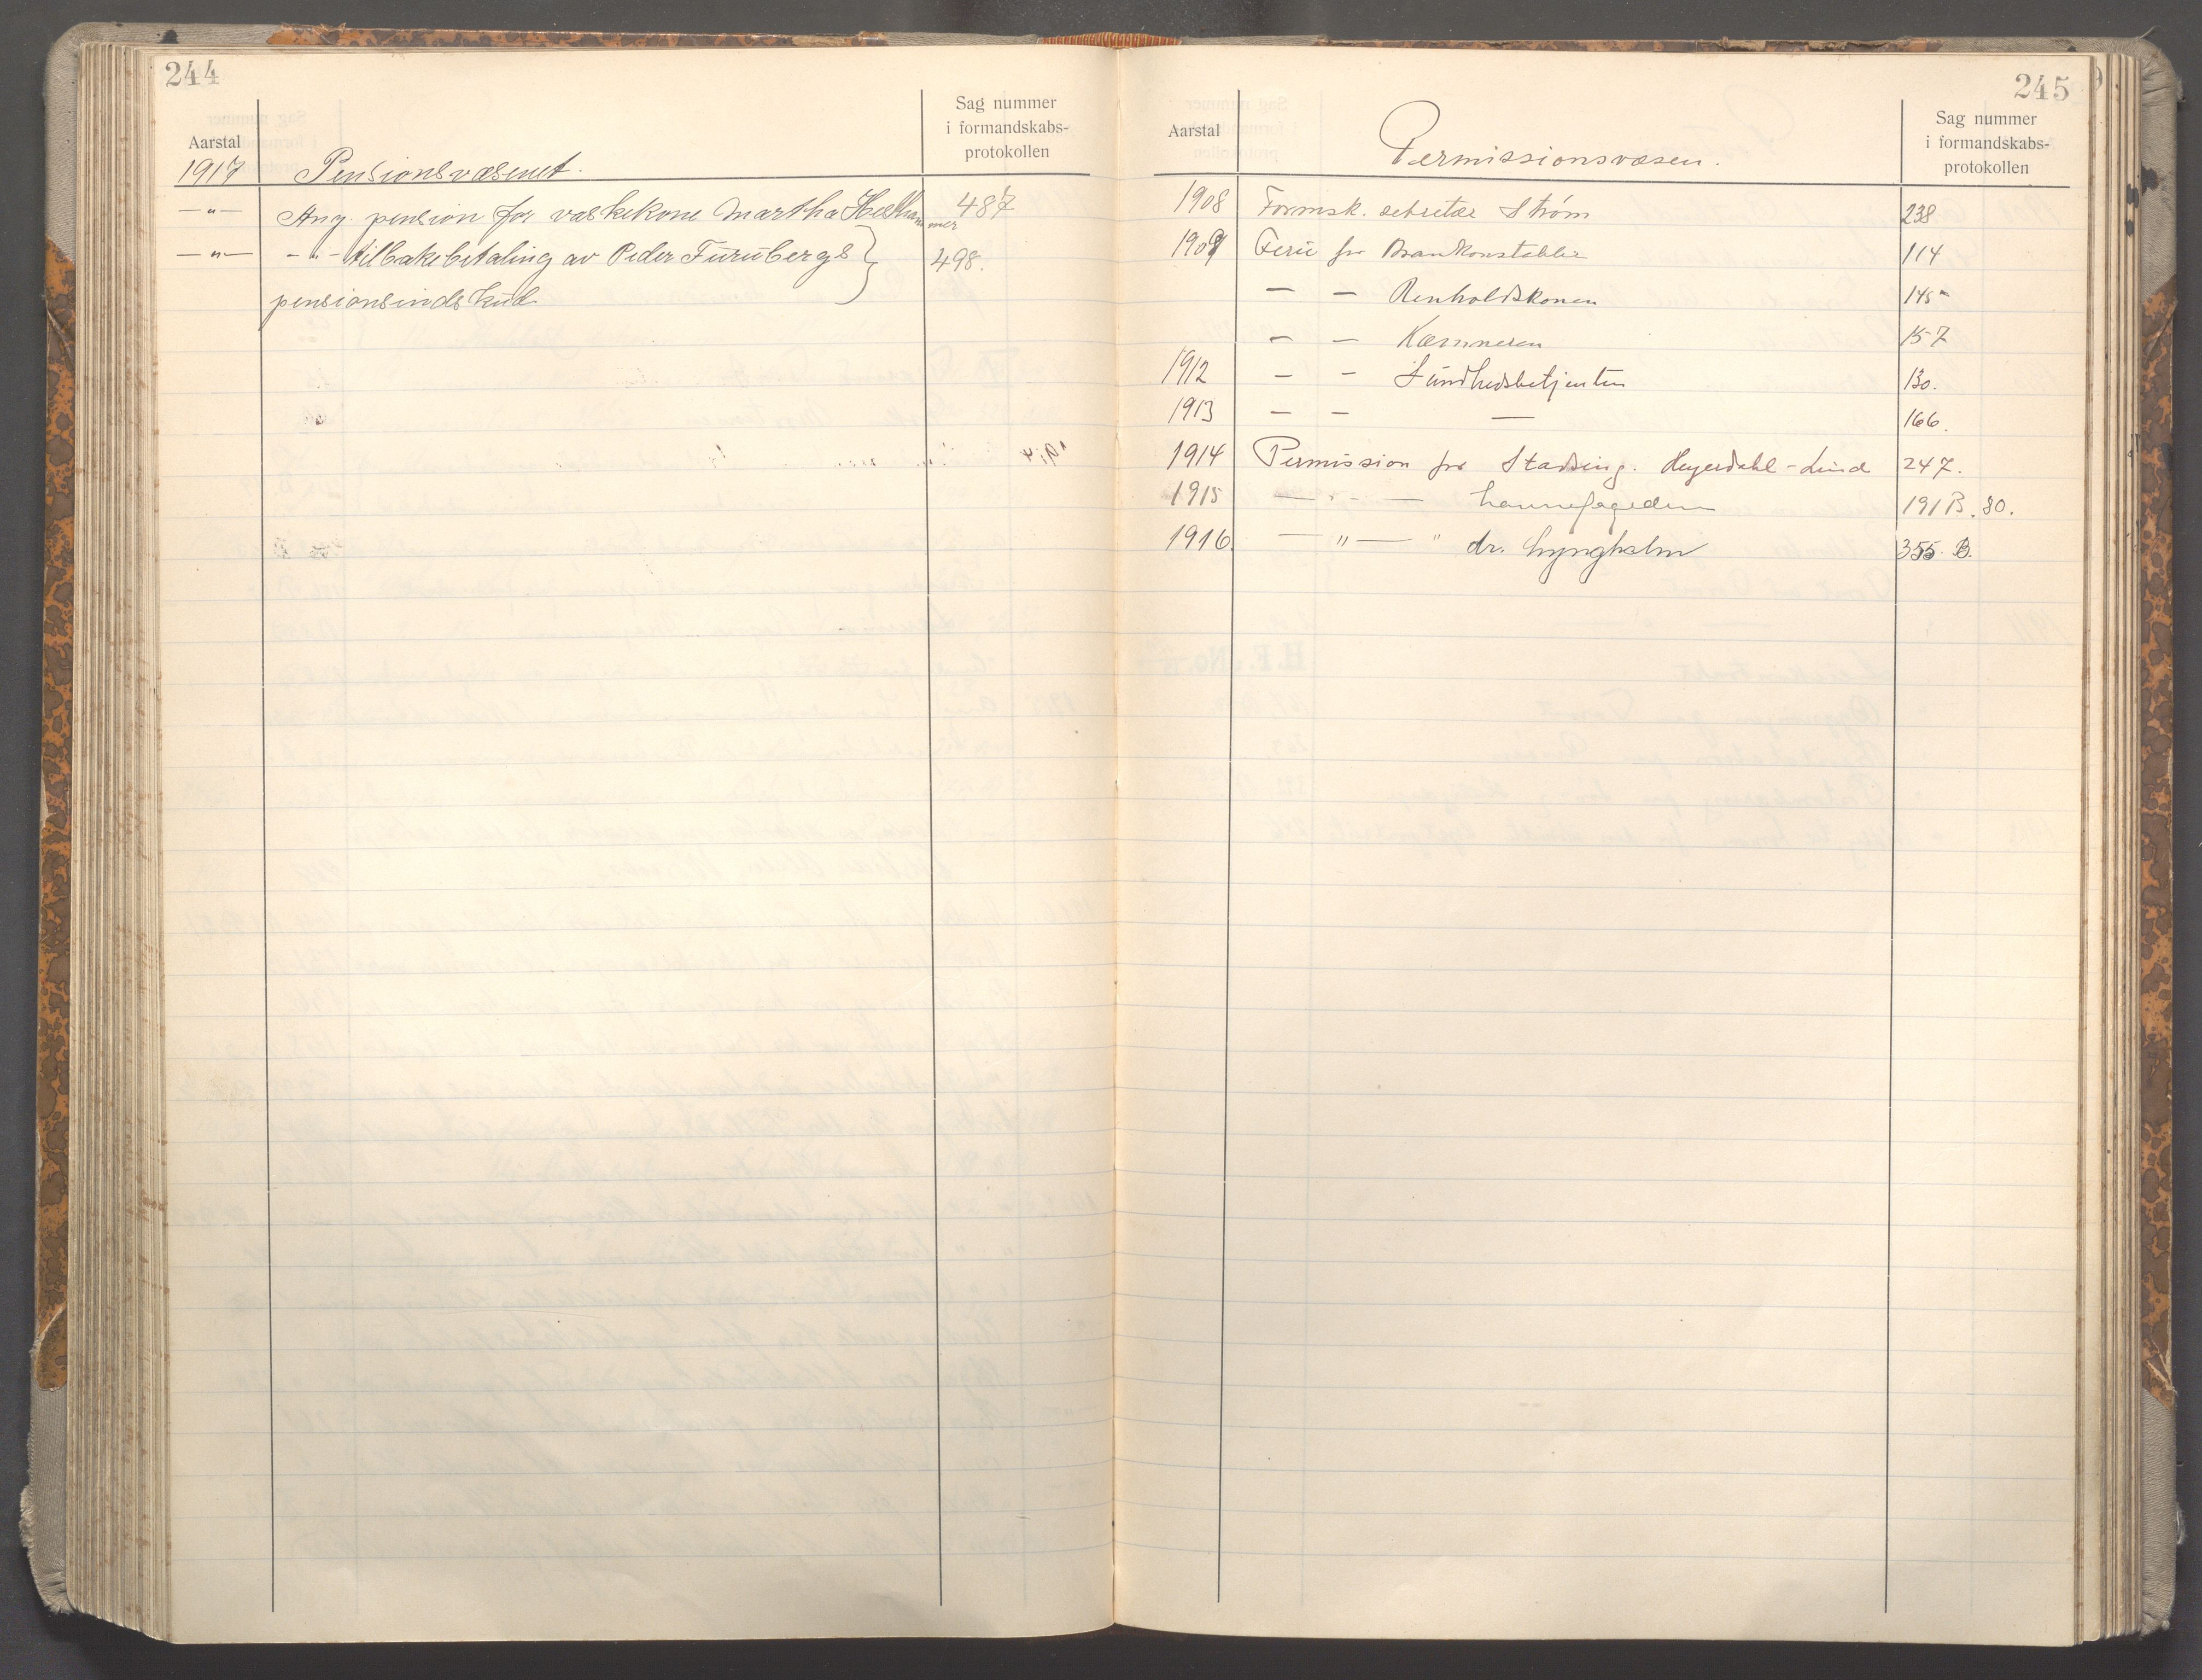 244
Sag nummer
i formandskabs-
protokollen
Aarstal
1917 Pensionsvæsenet.
—"— Ang. pension for vaskekone Martha Helham mer 487
—"— - " - tilbakebetaling av Peder Furubergs 498.
pensionsindskud
245
Aarstal
Permissionsvæsen.
Sag nummer
i formandskabs-
protokollen
1908 Formsk. sekretær Strøm 238
1909 Ferie for Brankonstabler 114
— — Renholdskonen 145
— — Kæmneren 157
1912 — — Sundhedsbetjenten 130.
1913 — — — 166.
1914 Permission for Stadsing. Heyerdahl-Lind 247.
1915 — " — havnefogeden 191 B. 80.
1916. — " — " dr. Lyngholm 355. B.